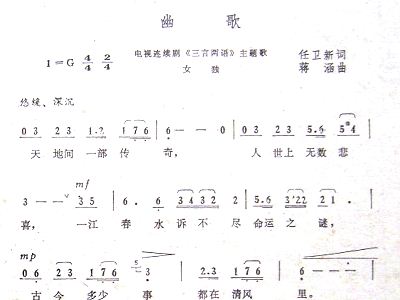 幽 歌
1=G 4/4 2/4 电视连续剧《三言两语》主题歌 任卫新词
女 独 蒋 涵曲
悠缓、深沉
0 3 2 3 1·2 1 7 6 | 6 - - - | 0 3 2 3 5·6 5 4 |
天 地间 一部 传 奇, 人 世上 无数 悲
mf
3 - - 3 5 | 6 · 6 3 4 3 2 | 2 5·6 3 22 2 1 |
喜, 一江 春 水 诉 不 尽 命运 之 谜,
mp
0 6 2 3 1 7 6 5 3 | 2·3 1 7 6 | 6 - - - |
古 今 多少 事 都在 清风 里。